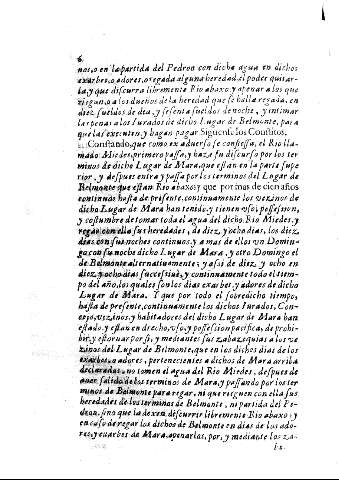 6.
nos, o en la partida del Pedron con dicha agua en dichos
exarbes, o adores, o regada alguna heredad el poder quitar-
la, y que discurra libremente Rio abaxo, y apenar a los que
riegan, o a los dueños de la heredad que se halla regada, en
diez sueldos de dia, y sesenta sueldos de noche, y intimar
las penas a los Iurados de dicho Lugar de Belmonte, para
que las executen, y hagan pagar. Siguense los Conflitos.
Constando, que como ex aduerso se confiessa, el Rio lla-
mado Miedes, primero passa, y haze su discurso por los ter
minos de dicho Lugar de Mara, que estan en la parte supe
rior, y despues entra y passa por los terminos del Lugar de
Belmonte que estan Rio abaxo: y que por mas de cien años
continuos hasta de presente, continuamente los vezinos de
dicho Lugar de Mara han tenido, y tienen vso, possession,
y costumbre de tomar toda el agua del dicho Rio Miedes, y
regar con ella sus heredades, de diez, y ocho dias, los diez
dias con sus noches continuos, y a mas de ellos vn Domin-
go con su noche dicho Lugar de Mara, y otro Domingo el
de Belmonte alternatiuamente; y assi de diez, y ocho en
diez, y ocho dias successiuè, y continuamente todo el tiem-
po del año, los quales son los dias exarbes, y adores de dicho
Lugar de Mara. Y que por todo el sobredicho tiempo,
hasta de presente, continuamente los dichos Iurados, Con-
cejo, vezinos, y habitadores del dicho Lugar de Mara han
estado, y estan en drecho, vso, y possession pacifica, de prohi-
bir, y estoruar por si, y mediante sus zabazequias a los ve
zinos del Lugar de Belmonte, que en los dichos dias de los
exarbes, o adores, pertenecientes a dichos de Mara arriba
declarados, no tomen el agua del Rio Miedes, despues de
auer salido de los terminos de Mara, y passando por los ter
minos de Belmonte para regar, ni que rieguen con ella sus
heredades de los terminos de Belmonte, ni partida del Pe-
dron, sino que la dexen discurrir libremente Rio abaxo; y
en caso de regar los dichos de Belmonte en dias de los ado-
res, y exarbes de Mara, apenarlos, por, y mediante los za-